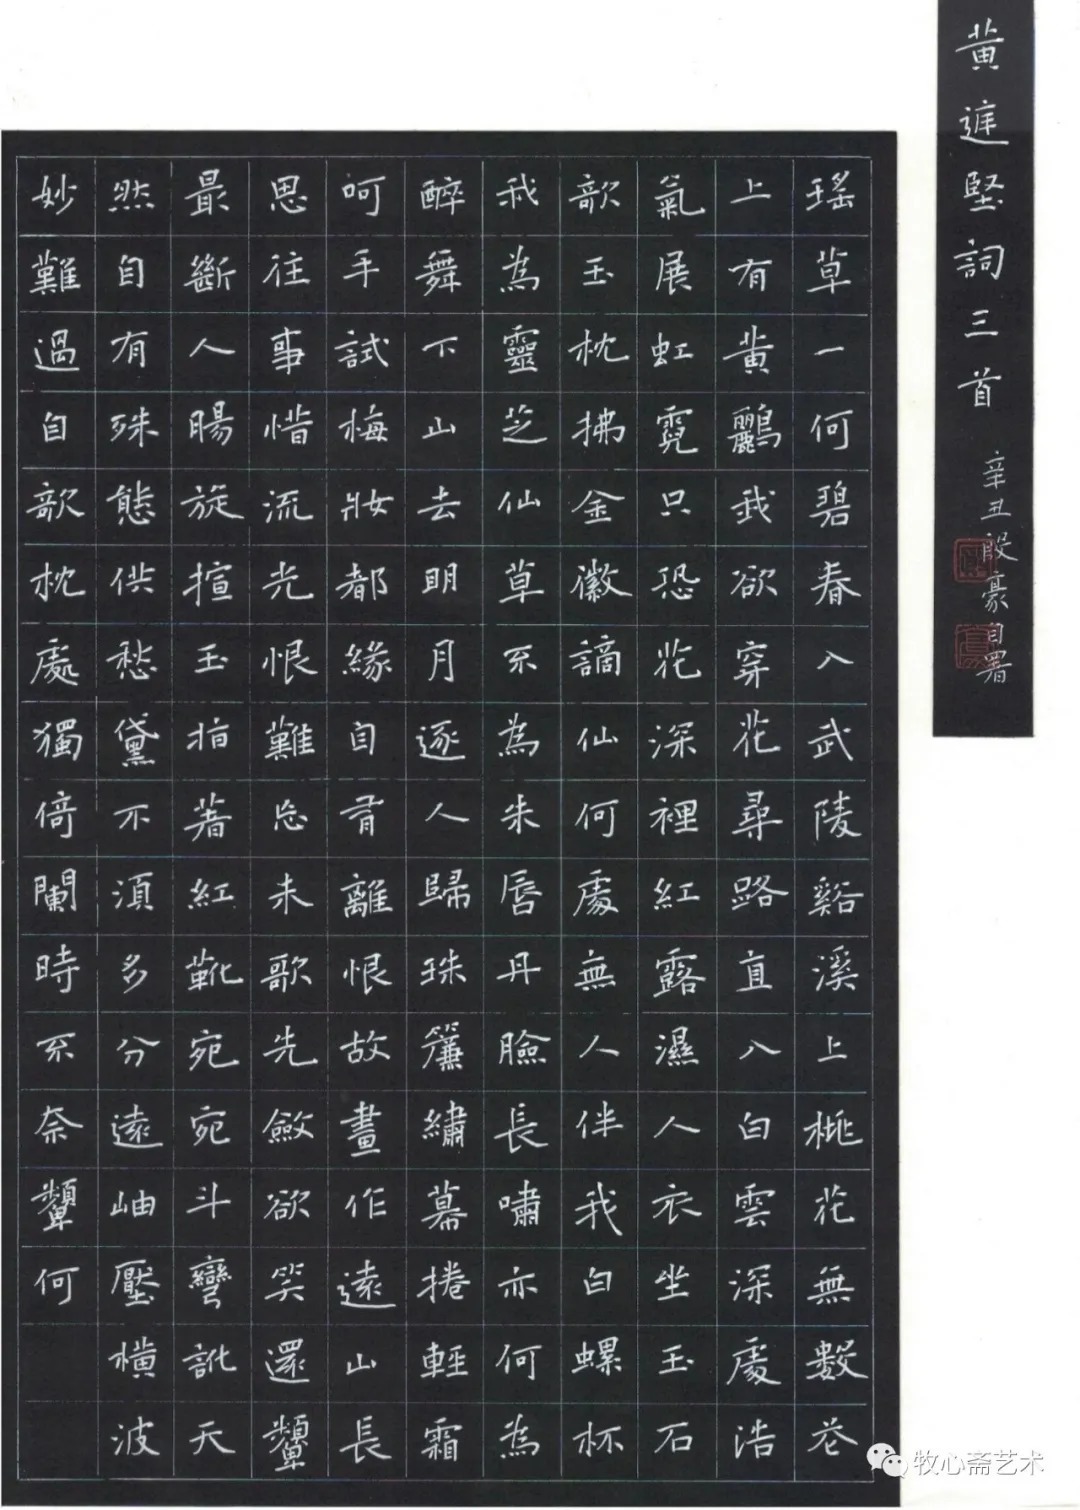 黄庭堅詞三首
辛丑殷豪自署
瑤草一何碧春入武陵谿溪上桃花無數花
上有黄鸝我欲穿花尋路直入白雲深處浩
氣展虹霓只恐花深裡紅露濕人衣坐玉石
欹玉枕拂金徽謫仙何處無人伴我白螺杯
我為靈芝仙草不為朱唇丹臉長嘯亦何為
醉舞下山去明月逐人歸珠簾繡幕捲輕霜
呵手試梅妝都緣自有離恨故畫作遠山長
思往事惜流光恨難忘未歌先斂欲笑還顰
最斷人腸旋揎玉指著紅靴宛宛斗彎訛天
然自有殊態供愁黛不須多分遠岫壓橫波
妙難過自欹枕處獨倚闌時不奈顰何
牧心斋艺术